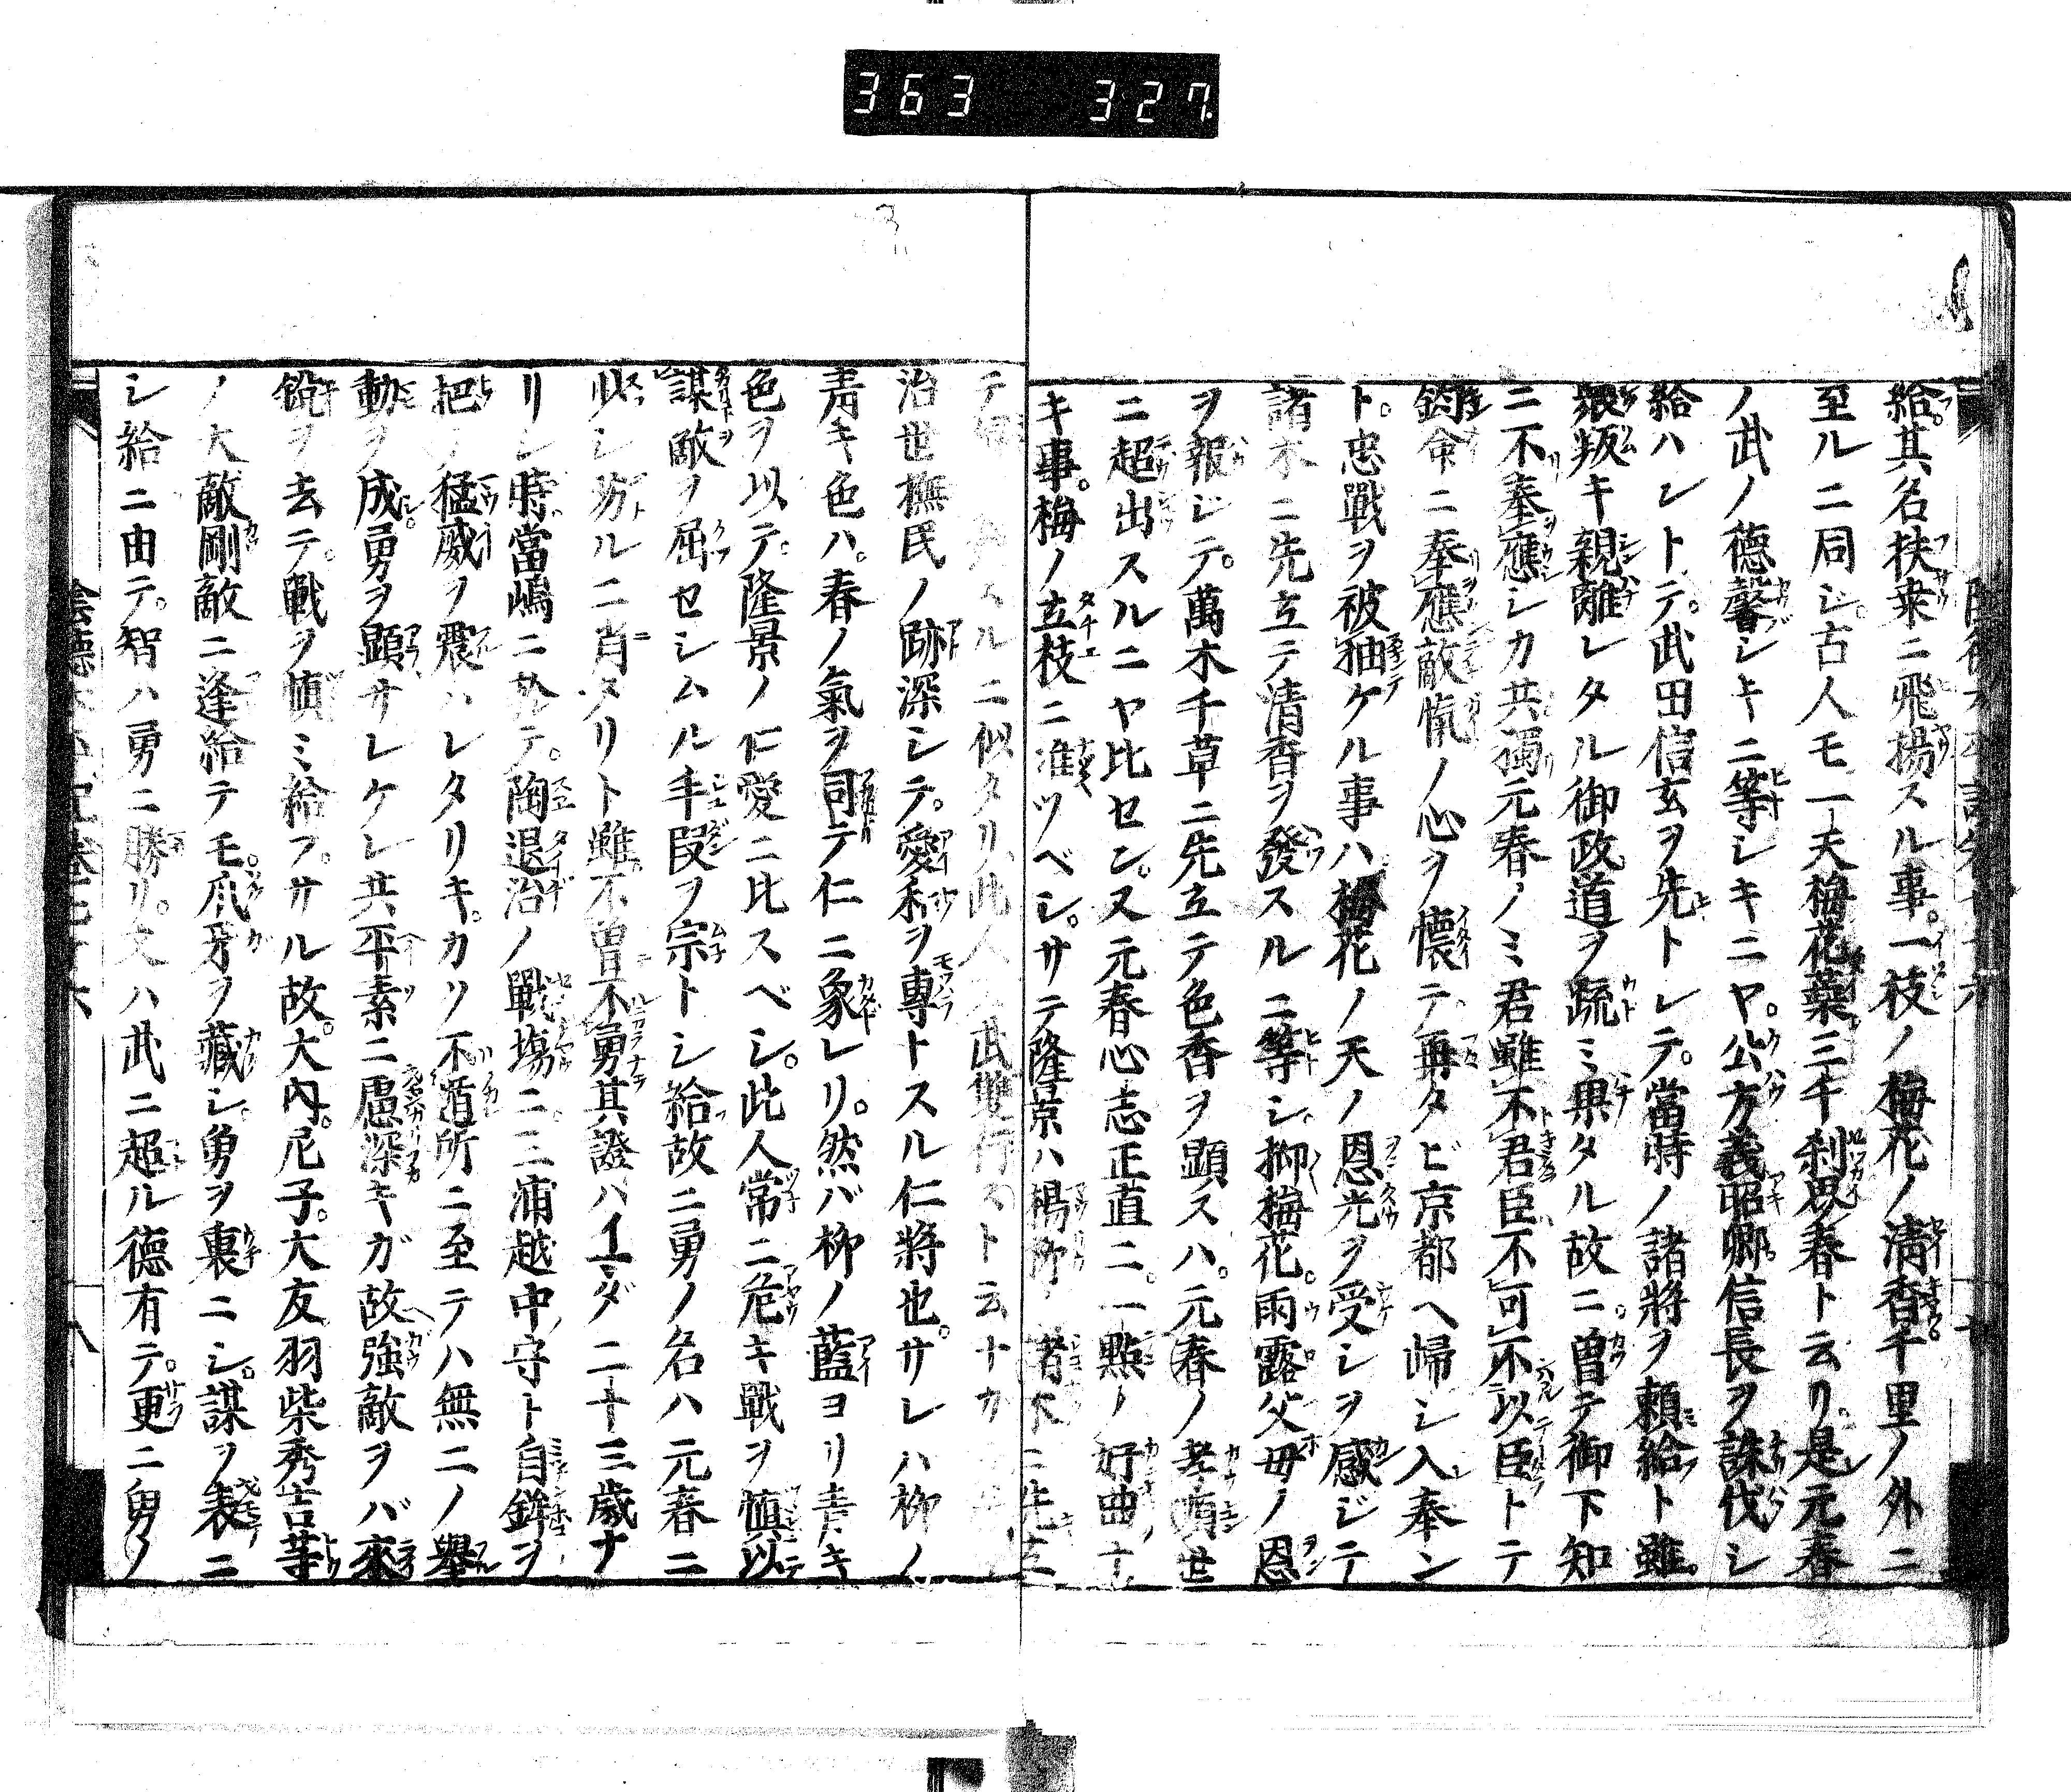 363 327
給。其名扶桒ニ飛揚スル事。一枝ノ梅花ノ清香千里ノ外ニ
至ルニ同シ。古人モ一天梅花蘂三千刹界春ト云リ。是元春
ノ武ノ德馨シキニ等シキニヤ。公方義昭卿信長ヲ誅伐シ
給ハントテ。武田信玄ヲ先トシテ。當時ノ諸將ヲ賴給ト雖。
衆叛キ親離レタル御政道ヲ疏ミ果タル故ニ。曽テ御下知
ニ不奉應シカ共獨元春ノミ君雖不君臣不可不以臣トテ
鈞命ニ奉應敵愾ノ心ヲ懷テ再タビ京都ヘ歸シ入奉ン
ト。忠戰ヲ被抽ケル事ハ梅花ノ天ノ恩光ヲ受シヲ感ジテ
諸木ニ先立テ清香ヲ發スルニ等シ抑梅花。雨露父母ノ恩
ヲ報ジテ。萬木千草ニ先立テ色香ヲ顯スハ。元春ノ孝順世
ニ超出スルニヤ比セン。又元春心志正直ニ。一點ノ好曲ナ
キ事。梅ノ立枝ニ准ツベシ。サテ隆景ハ楊柳ノ諸木ニ先立
テ スルニ似タリ此人 武雙行ストト云ナカ
治世撫民ノ跡深シテ。愛和ヲ專トスル仁將也。サレハ柳ノ
靑キ色ハ。春ノ氣ヲ司テ仁ニ象レリ。然バ柳ノ藍ヨリ青キ
色ヲ以テ。隆景ノ仁愛ニ比スベシ。此人常ニ危キ戰ヲ愼以
謀敵ヲ屈セシムル手段ヲ宗トシ給故ニ勇ノ名ハ元春ニ
少シ劣ルニ肖タリト雖不曽不勇其證ハイマダ二十三歲ナ
リシ時當嶋ニ於テ。陶退治ノ戰塲ニ。三浦越中守ト自鉾ヲ
把テ猛威ヲ震ハレタリキ。カツ不遁所ニ至テハ無二ノ擧
動ヲ成。勇ヲ顯サレケレ共平素ニ慮深キガ故強敵ヲバ來
銳ヲ去テ。戰ヲ愼ミ給フ。サル故。大內。尼子。大友羽柴秀吉等
ノ大敵剛敵ニ逢給テモ。爪牙ヲ藏シ。勇ヲ裏ニシ。謀ヲ表ニ
シ給ニ由テ。智ハ勇ニ勝リ。文ハ武ニ超ル德有テ。更ニ臾ノ